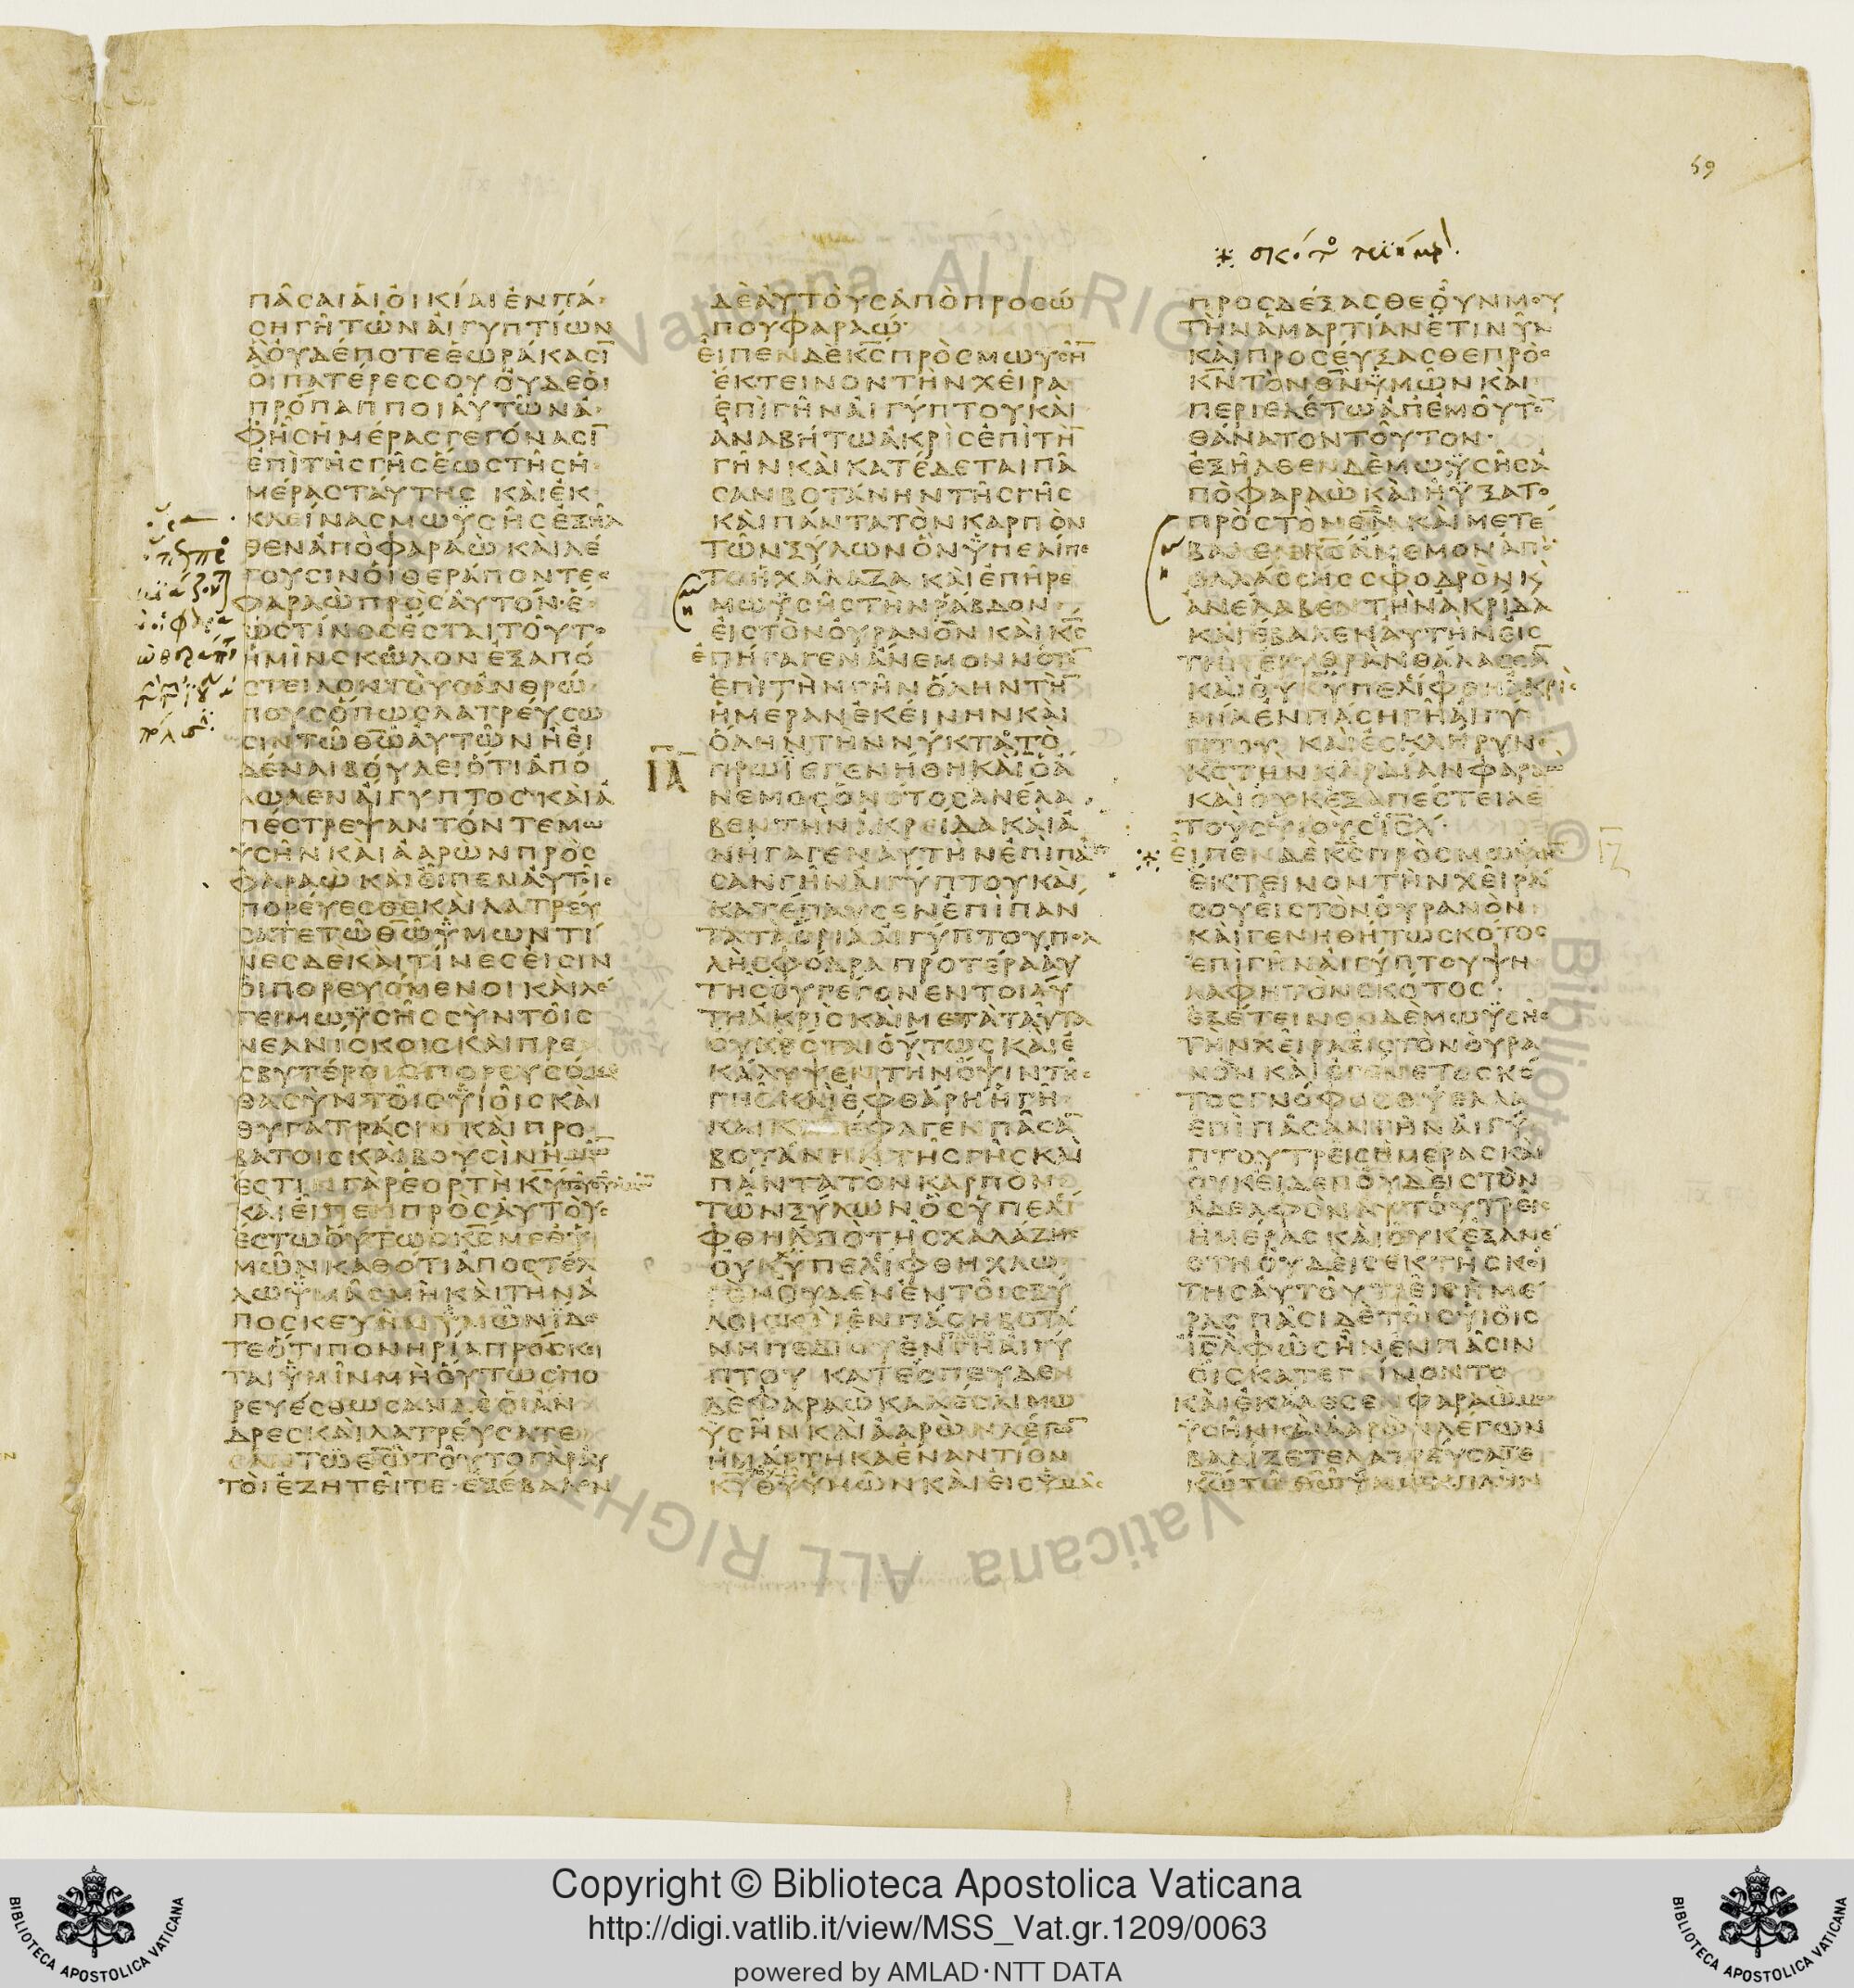 59
ΠΑϹΑΙΑΙΟΙΚΙΑΙΕΝΠΑ
ϹΗΓΗΤΩΝΑΙΓΥΠΤΙΩΝ
ΑΟΥΔΕΠΟΤΕΕΩΡΑΚΑϹΙ̅
ΟΙΠΑΤΕΡΕϹϹΟΥΟΥΔΕΟΙ
ΠΡΟΠΑΠΠΟΙΑΥΤΩΝΑ
ΦΗϹΗΜΕΡΑϹΓΕΓΟΝΑϹΙ̅
ΕΠΙΤΗϹΓΗϹΕΩϹΤΗϹΗ
ΜΕΡΑϹΤΑΥΤΗϹ ΚΑΙΕΚ
ΚΛΕΙΝΑϹΜΩΥϹΗϹΕΞΗΛ
ΘΕΝΑΠΟΦΑΡΑΩ ΚΑΙΛΕ
ΓΟΥϹΙΝΟΙΘΕΡΑΠΟΝΤΕϹ
ΦΑΡΑΩΠΡΟϹΑΥΤΟΝ·Ε
ΩϹΤΙΝΟϹΕϹΤΑΙΤΟΥΤΟ
ΗΜΙΝϹΚΩΛΟΝΕΞΑΠΟ
ϹΤΕΙΛΟΝΤΟΥϹΑΝΘΡΩ
ΠΟΥϹΟΠΩϹΛΑΤΡΕΥϹΩ
ϹΙΝΤΩΘ̅Ω̅ΑΥΤΩΝΗΕΙ
ΔΕΝΑΙΒΟΥΛΕΙΟΤΙΑΠΟ
ΛΩΛΕΝΑΙΓΥΠΤΟϹ ΚΑΙΑ
ΠΕϹΤΡΕΨΑΝΤΟΝΤΕΜΩ
ΥϹΗΝΚΑΙΑΑΡΩΝΠΡΟϹ
ΦΑΡΑΩ ΚΑΙΕΙΠΕΝΑΥΤΟΙϹ
ΠΟΡΕΥΕϹΘΕΚΑΙΛΑΤΡΕΥ
ϹΑΤΕΤΩΘ̅Ω̅ΥΜΩΝΤΙ
ΝΕϹΔΕΚΑΙΤΙΝΕϹΕΙϹΙΝ
ΟΙΠΟΡΕΥΟΜΕΝΟΙ ΚΑΙΛΕ
ΓΕΙΜΩΥϹΗϹϹΥΝΤΟΙϹ
ΝΕΑΝΙϹΚΟΙϹΚΑΙΠΡΕ
ϹΒΥΤΕΡΟΙϹΠΟΡΕΥϹΟΜΕ
ΘΑϹΥΝΤΟΙϹΥΙΟΙϹΚΑΙ
ΘΥΓΑΤΡΑϹΙΝ ΚΑΙΠΡΟ
ΒΑΤΟΙϹΚΑΙΒΟΥϹΙΝΗΜΩ̅
ΕϹΤΙΝΓΑΡΕΟΡΤΗΚ̅Υ̅
ΚΑΙΕΙΠΕΝΠΡΟϹΑΥΤΟΥϹ
ΕϹΤΩΟΥΤΩϹΚ̅Ϲ̅ΜΕΘΥ
ΜΩΝΚΑΘΟΤΙΑΠΟϹΤΕΛ
ΛΩΥΜΑϹΜΗΚΑΙΤΗΝΑ
ΠΟϹΚΕΥΗΝΥΜΩΝΙΔΕ
ΤΕΟΤΙΠΟΝΗΡΙΑΠΡΟϹΚΕΙ
ΤΑΙΥΜΙΝΜΗΟΥΤΩϹΠΟ
ΡΕΥΕϹΘΩϹΑΝΔΕΟΙΑΝ
ΔΡΕϹΚΑΙΛΑΤΡΕΥϹΑΤΕ
ϹΑΝΤΩΘΕΩΤΟΥΤΟΓΑΡΑΥ
ΤΟΙΕΖΗΤΕΙΤΕ·ΕΞΕΒΑΛΟΝ
ΔΕΑΥΤΟΥϹΑΠΟΠΡΟϹΩ
ΠΟΥΦΑΡΑΩ·
ΕΙΠΕΝΔΕΚ̅Ϲ̅ΠΡΟϹΜΩΥϹΗ̅
ΕΚΤΕΙΝΟΝΤΗΝΧΕΙΡΑ
ΕΠΙΓΗΝΑΙΓΥΠΤΟΥΚΑΙ
ΑΝΑΒΗΤΩΑΚΡΙϹΕΠΙΤΗ̅
ΓΗΝΚΑΙΚΑΤΕΔΕΤΑΙΠΑ
ϹΑΝΒΟΤΑΝΗΝΤΗϹΓΗϹ
ΚΑΙΠΑΝΤΑΤΟΝΚΑΡΠΟΝ
ΤΩΝΞΥΛΩΝΟΝΥΠΕΛΙΠΕ
ΤΟΗΧΑΛΑΖΑ ΚΑΙΕΠΗΡΕ
ΜΩΥϹΗϹΤΗΝΡΑΒΔΟΝ
ΕΙϹΤΟΝΟΥΡΑΝΟΝ ΚΑΙΚ̅Ϲ̅
ΕΠΗΓΑΓΕΝΑΝΕΜΟΝΝΟΤΟ̅
ΕΠΙΤΗΝΓΗΝΟΛΗΝΤΗ̅
ΗΜΕΡΑΝΕΚΕΙΝΗΝΚΑΙ
ΟΛΗΝΤΗΝΝΥΚΤΑΤΟ
ΙΑ
ΠΡΩΙΕΓΕΝΗΘΗΚΑΙΟΑ
ΝΕΜΟϹΟΝΟΤΟϹΑΝΕΛΑ
ΒΕΝΤΗΝΑΚΡΕΙΔΑΚΑΙΑ
ΝΗΓΑΓΕΝΑΥΤΗΝΕΠΙΠΑ
ϹΑΝΓΗΝΑΙΓΥΠΤΟΥΚΑΙ
ΚΑΤΕΠΑΥϹΕΝΕΠΙΠΑΝ
ΤΑΤΑΟΡΙΑΑΙΓΥΠΤΟΥΠΟΛ
ΛΗϹΦΟΔΡΑΠΡΟΤΕΡΑΑΥ
ΤΗϹΟΥΓΕΓΟΝΕΝΤΟΙΑΥ
ΤΗΑΚΡΙϹΚΑΙΜΕΤΑΤΑΥΤΑ
ΟΥΚΕϹΤΑΙΟΥΤΩϹΚΑΙΕ
ΚΑΛΥΨΕΝΤΗΝΟΨΙΝΤΗϹ
ΓΗϹΚΑΙΕΦΘΑΡΗΗΓΗ
ΚΑΙΚΑΤΕΦΑΓΕΝΠΑϹΑ̅
ΒΟΤΑΝΗΝΤΗϹΓΗϹΚΑΙ
ΠΑΝΤΑΤΟΝΚΑΡΠΟΝ
ΤΩΝΞΥΛΩΝΟϹΥΠΕΛΙ
ΦΘΗΑΠΟΤΗϹΧΑΛΑΖΗϹ
ΟΥΧΥΠΕΛΙΦΘΗΧΛΩ
ΡΟΝΟΥΔΕΝΕΝΤΟΙϹΞΥ
ΛΟΙϹΚΑΙΕΝΠΑϹΗΒΟΤΑ
ΝΗΠΕΔΙΟΥΕΝΓΗΑΙΓΥ
ΠΤΟΥ ΚΑΤΕϹΠΕΥΔΕΝ
ΔΕΦΑΡΑΩΚΑΛΕϹΑΙΜΩ
ΥϹΗΝΚΑΙΑΑΡΩΝΛΕΓΩ̅
ΗΜΑΡΤΗΚΑΕΝΑΝΤΙΟΝ
Κ̅Υ̅Θ̅Υ̅ΥΜΩΝΚΑΙΕΙϹΥΜΑϹ
ΠΡΟϹΔΕΞΑϹΘΕΟΥΝΜΟΥ
ΤΗΝΑΜΑΡΤΙΑΝΕΤΙΝΥΝ
ΚΑΙΠΡΟϹΕΥΞΑϹΘΕΠΡΟϹ
Κ̅Ν̅ΤΟΝΘ̅Ν̅ΥΜΩΝΚΑΙ
ΠΕΡΙΕΛΕΤΩΑΠΕΜΟΥΤΟ̅
ΘΑΝΑΤΟΝΤΟΥΤΟΝ·
ΕΞΗΛΘΕΝΔΕΜΩΥϹΗϹΑ
ΠΟΦΑΡΑΩΚΑΙΗΥΞΑΤΟ
ΠΡΟϹΤΟΝΘ̅Ν̅ ΚΑΙΜΕΤΕ
ΒΑΛΕΝΚ̅Ϲ̅ΑΝΕΜΟΝΑΠΟ
ΘΑΛΑϹϹΗϹϹΦΟΔΡΟΝΚ
ΑΝΕΛΑΒΕΝΤΗΝΑΚΡΙΔΑ
ΚΑΙΕΒΑΛΕΝΑΥΤΗΝΕΙϹ
ΤΗΝΕΡΥΘΡΑΝΘΑΛΑϹϹΑ̅
ΚΑΙΟΥΧΥΠΕΛΙΦΘΗΑΚΡΙϹ
ΜΙΑΕΝΠΑϹΗΓΗΑΙΓΥ
ΠΤΟΥ ΚΑΙΕϹΚΛΗΡΥΝΕ
Κ̅Ϲ̅ΤΗΝΚΑΡΔΙΑΝΦΑΡΑΩ
ΚΑΙΟΥΚΕΞΑΠΕϹΤΕΙΛΕ
ΤΟΥϹΥΙΟΥϹΙ̅Ϲ̅Λ̅·
ΕΙΠΕΝΔΕΚ̅Ϲ̅ΠΡΟϹΜΩΥϹΗ̅
ΙΖ
ΕΚΤΕΙΝΟΝΤΗΝΧΕΙΡΑ
ϹΟΥΕΙϹΤΟΝΟΥΡΑΝΟΝ
ΚΑΙΓΕΝΗΘΗΤΩϹΚΟΤΟϹ
ΕΠΙΓΗΝΑΙΓΥΠΤΟΥΨΗ
ΛΑΦΗΤΟΝϹΚΟΤΟϹ·
ΕΞΕΤΕΙΝΕΝΔΕΜΩΥϹΗϹ
ΤΗΝΧΕΙΡΑΕΙϹΤΟΝΟΥΡΑ
ΝΟΝ ΚΑΙΕΓΕΝΕΤΟϹΚΟ
ΤΟϹΓΝΟΦΟϹΘΥΕΛΛΑ
ΕΠΙΠΑϹΑΝΓΗΝΑΙΓΥ
ΠΤΟΥΤΡΕΙϹΗΜΕΡΑϹΚΑΙ
ΟΥΚΕΙΔΕΝΟΥΔΕΙϹΤΟΝ
ΑΔΕΛΦΟΝΑΥΤΟΥΤΡΕΙϹ
ΗΜΕΡΑϹΚΑΙΟΥΚΕΞΑΝΕ
ϹΤΗΟΥΔΕΙϹΕΚΤΗϹΚΟΙ
ΤΗϹΑΥΤΟΥΤΡΕΙϹΗΜΕ
ΡΑϹΠΑϹΙΔΕΤΟΙϹΥΙΟΙϹ
Ι̅Ϲ̅Λ̅ΦΩϹΗΝΕΝΠΑϹΙΝ
ΟΙϹΚΑΤΕΓΕΙΝΟΝΤΟ
ΚΑΙΕΚΑΛΕϹΕΝΦΑΡΑΩΜΩ
ΥϹΗΝΚΑΙΑΑΡΩΝΛΕΓΩΝ
ΒΑΔΙΖΕΤΕΛΑΤΡΕΥϹΑΤΕ
Κ̅Ω̅ΤΩΘ̅Ω̅ΥΜΩΝΠΛΗΝ
Copyright © Biblioteca Apostolica Vaticana
http://digi.vatlib.it/view/MSS_Vat.gr.1209/0063
powered by AMLAD·NTT DATA
BIBLIOTECA APOSTOLICA VATICANA
BIBLIOTECA APOSTOLICA VATICANA